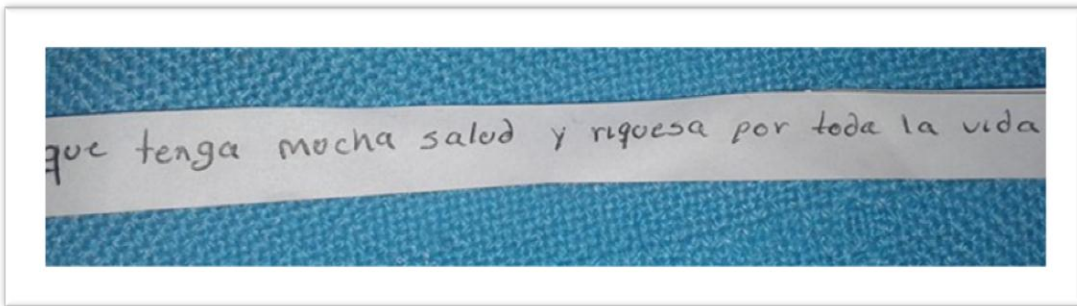 que tenga mucha salud y riquesa por toda la vida